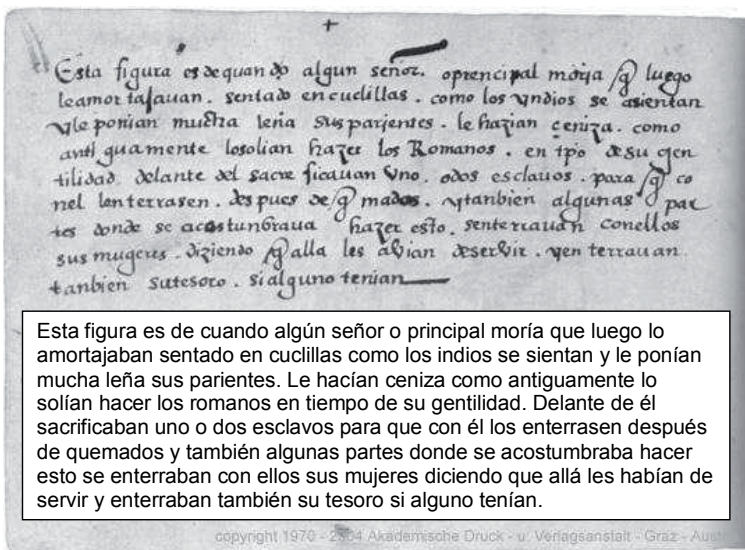 Esta figura es de quando algun señor. o prencipal moria q̃ luego
le amortajauan. sentado en cuclillas. como los yndios se asientan
y le ponian mucha leña sus parientes. le hazian ceniza. como
antiguamente lo solian hazer los Romanos. en tp̃o de su gen
tilidad. delante del sacreficauan Vno. o dos esclauos. para q̃ co
nel lenterrasen. despues de q̃mados. y tanbien algunas par
tes donde se acostunbraua hazer esto. senterrauan conellos
sus mugeres. diziendo q̃ alla les abian de serbir. y enterrauan
tanbien su tesoro. si alguno tenian
Esta figura es de cuando algún señor o principal moría que luego lo
amortajaban sentado en cuclillas como los indios se sientan y le ponían
mucha leña sus parientes. Le hacían ceniza como antiguamente lo
solían hacer los romanos en tiempo de su gentilidad. Delante de él
sacrificaban uno o dos esclavos para que con él los enterrasen después
de quemados y también algunas partes donde se acostumbraba hacer
esto se enterraban con ellos sus mujeres diciendo que allá les habían de
servir y enterraban también su tesoro si alguno tenían.
copyright 1970 - 2004 Akademische Druck - u. Verlagsanstalt - Graz - Aust